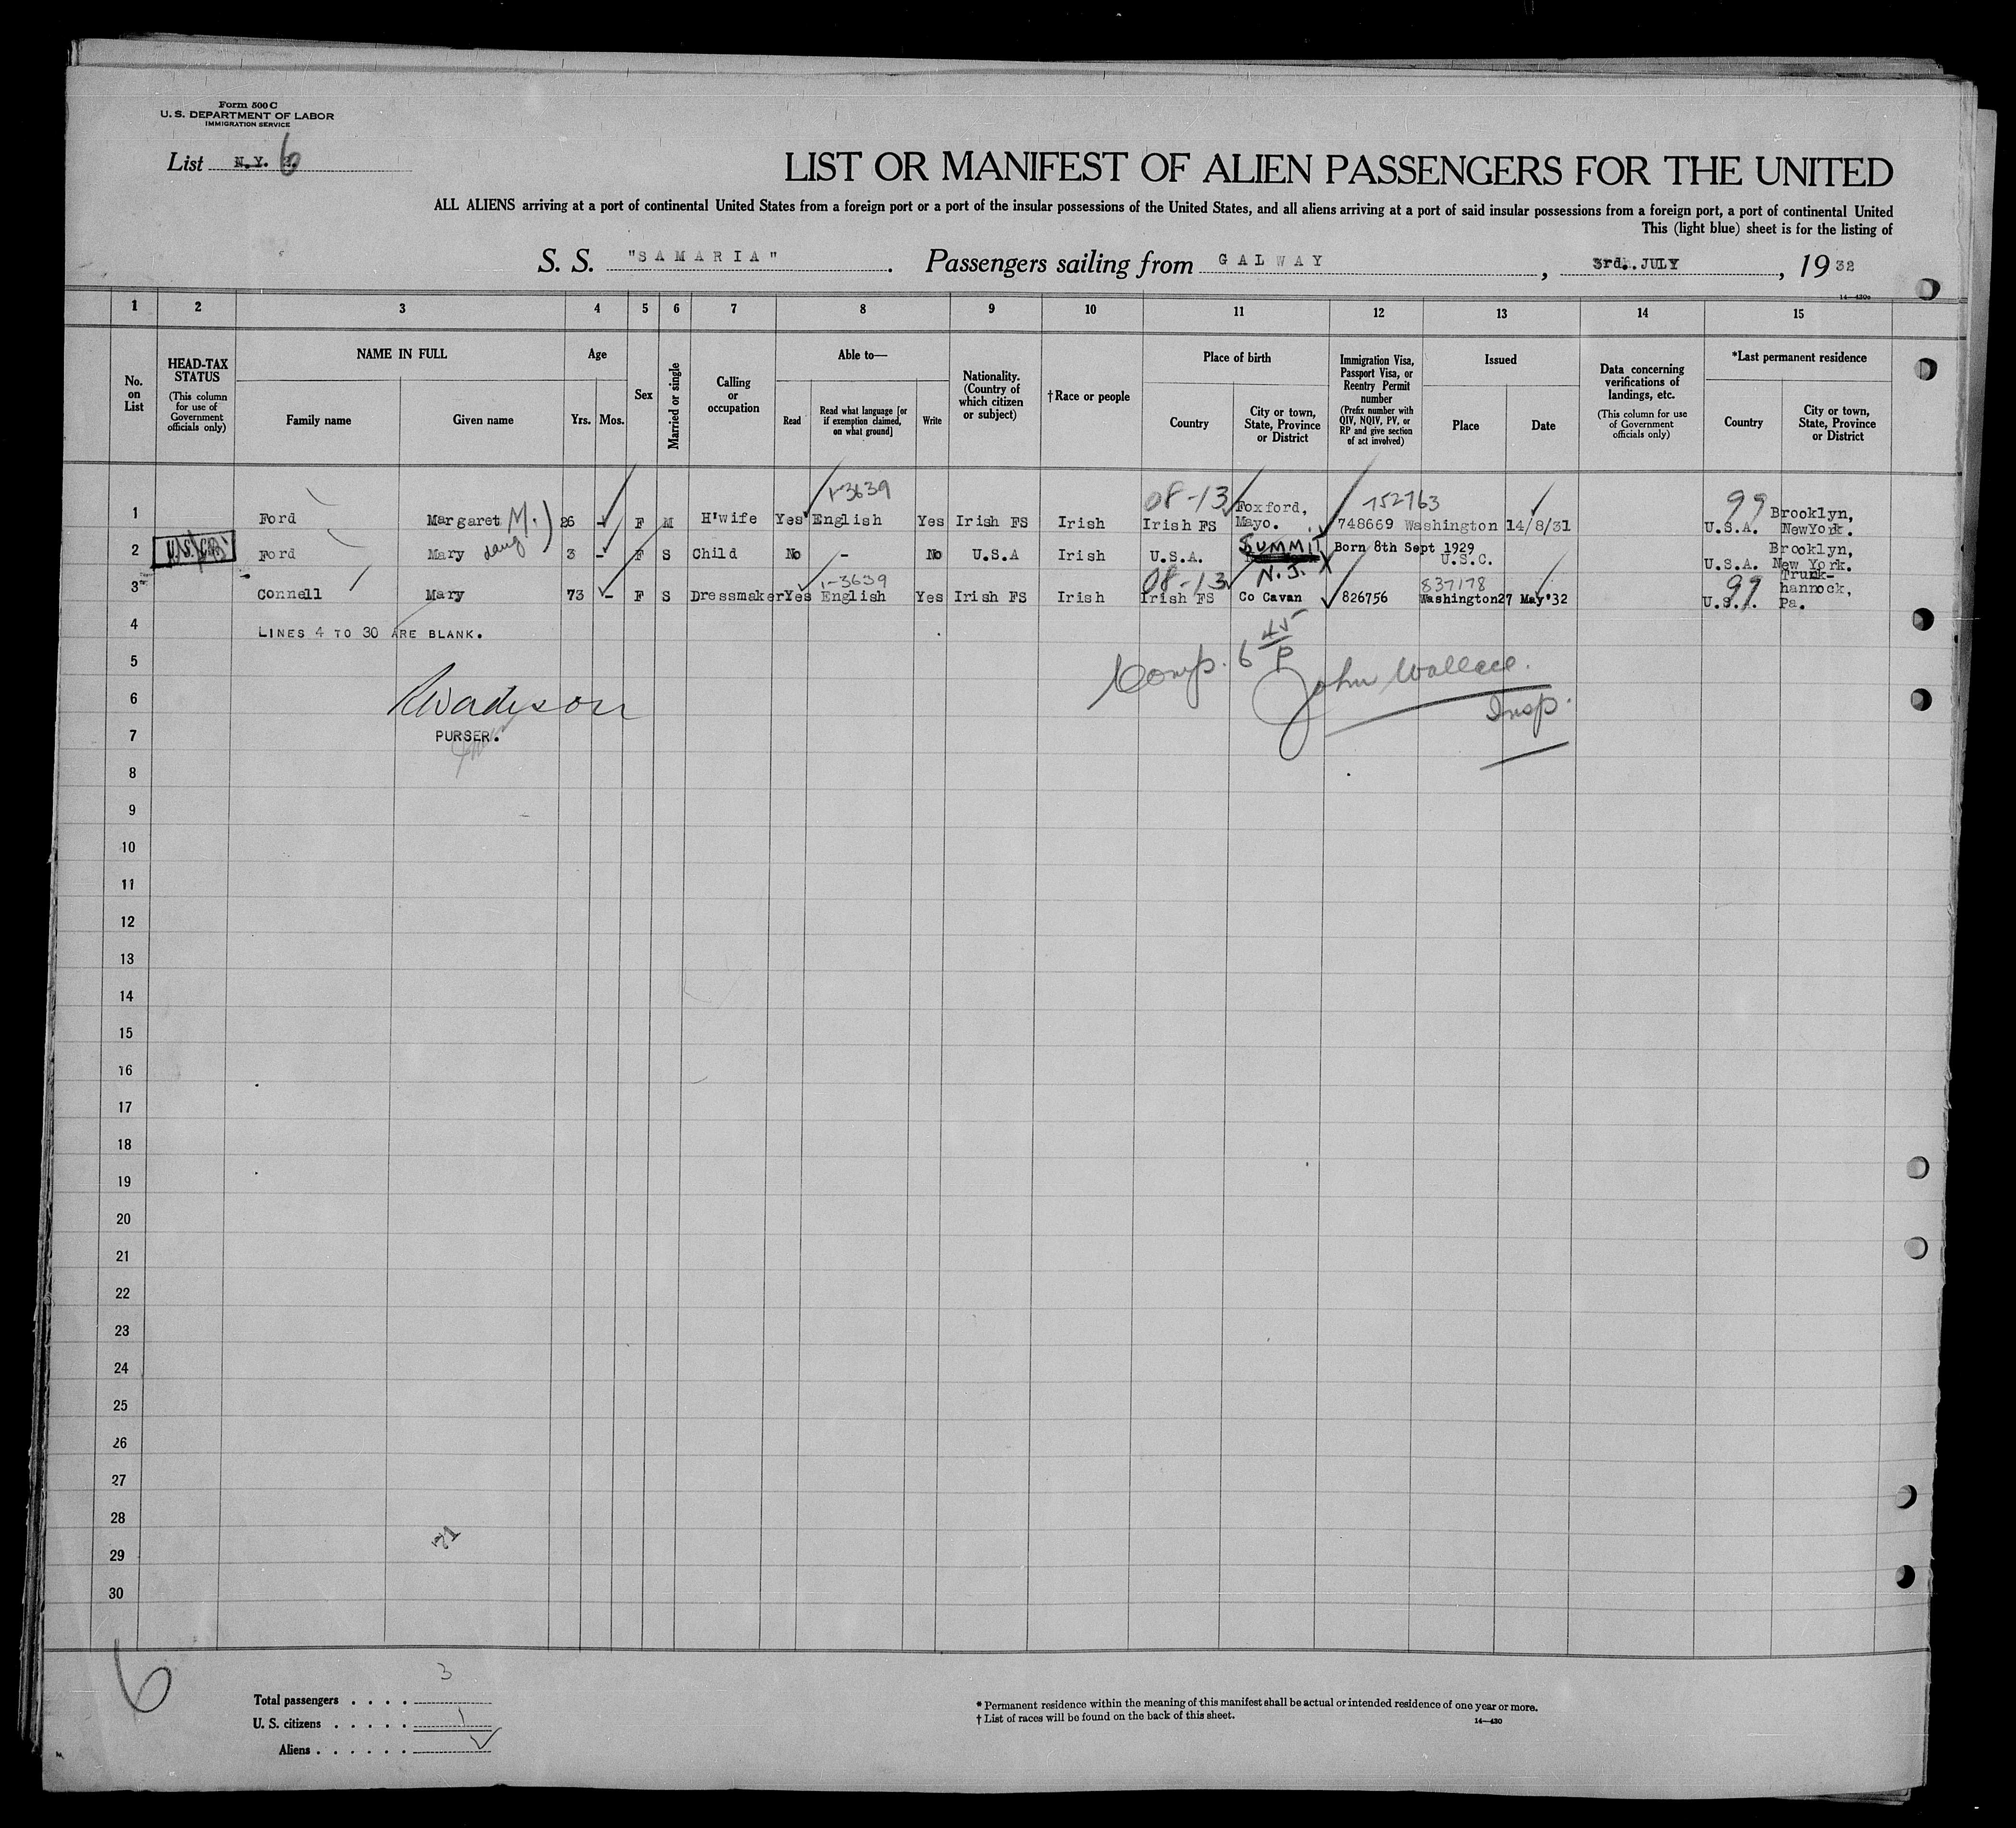 Form 500 C
U. S. DEPARTMENT OF LABOR
IMMIGRATION SERVICE
List N.Y. 6
LIST OR MANIFEST OF ALIEN PASSENGERS FOR THE UNITED
ALL ALIENS arriving at a port of continental United States from a foreign port or a port of the insular possessions of the United States, and all aliens arriving at a port of said insular possessions from a foreign port, a port of continental United
This (light blue) sheet is for the listing of
S. S. "SAMARIA". Passengers sailing from GALWAY, 3rd. JULY, 1932
14—430c
1 2 3 4 5 6 7 8 9 10 11 12 13 14 15
No. on List
HEAD-TAX STATUS
(This column for use of Government officials only)
NAME IN FULL
Family name
Given name
Age
Yrs. Mos.
Sex
Married or single
Calling or occupation
Able to—
Read
Read what language [or if exemption claimed, on what ground]
Write
Nationality. (Country of which citizen or subject)
†Race or people
Place of birth
Country
City or town, State, Province or District
Immigration Visa, Passport Visa, or Reentry Permit number
(Prefix number with QIV, NQIV, PV, or RP and give section of act involved)
Issued
Place
Date
Data concerning verifications of landings, etc.
(This column for use of Government officials only)
*Last permanent residence
Country
City or town, State, Province or District
1-3639 08-13 Foxford, 152763 99 Brooklyn,
1 Ford Margaret M. 26 - F M H'wife Yes English Yes Irish FS Irish Irish FS Mayo. 748669 Washington 14/8/31 U.S.A. NewYork.
2 U.S. Ford Mary daug 3 - F S Child No - No U.S.A Irish U.S.A. SUMMIT N.J. Born 8th Sept 1929 U.S.C. U.S.A. Brooklyn, New York.
1-3639 08-13 837178 99 Trunk-
3 Connell Mary 73 - F S Dressmaker Yes English Yes Irish FS Irish Irish FS Co Cavan 826756 Washington 27 May'32 U.S.A. hannock, Pa.
4 LINES 4 TO 30 ARE BLANK.
5 Comp. 6 45/P John Wallace.
6 Insp.
7 PURSER.
8
9
10
11
12
13
14
15
16
17
18
19
20
21
22
23
24
25
26
27
28
29
30
6
3
Total passengers . . . .
U. S. citizens . . . . . 1
Aliens . . . . . .
* Permanent residence within the meaning of this manifest shall be actual or intended residence of one year or more.
† List of races will be found on the back of this sheet.
14—430